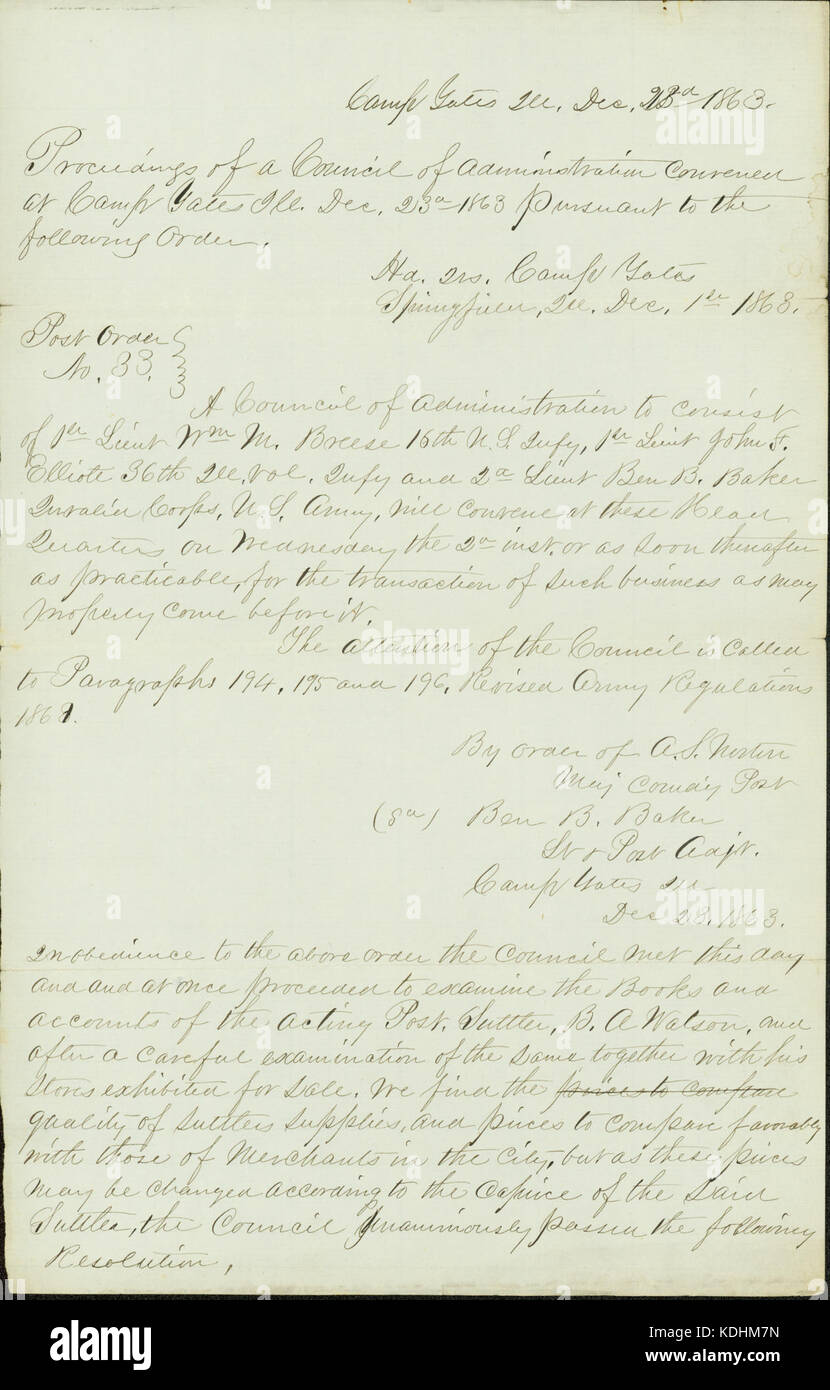 Camp Yates Ill. Dec. 23d 1863.
Proceedings of a Council of Administration convened
at Camp Yates Ill. Dec. 23d 1863 pursuant to the
following Order.
Hd. Qrs. Camp Yates
Springfield, Ill. Dec. 1st 1863.
Post Order
No. 33.
A Council of Administration to consist
of 1st Lieut Wm M. Breese 16th U.S. Infy, 1st Lieut John F.
Elliott 36th Ill. Vol. Infy and 2d Lieut Ben B. Baker
Invalid Corps, U.S. Army, will convene at these Head
Quarters on Wednesday the 2d inst. or as soon thereafter
as practicable, for the transaction of such business as may
properly come before it.
The attention of the Council is called
to Paragraphs 194, 195 and 196, Revised Army Regulations
1861.
By order of A. S. Norton
Maj Comd'g Post
(Sd) Ben B. Baker
Lt & Post Adjt.
Camp Yates Ill
Dec 23. 1863.
In obedience to the above order the Council met this day
and and at once proceeded to examine the Books and
accounts of the acting Post. Suttler, B. A Watson, and
after a careful examination of the same together with his
stores exhibited for sale. We find the prices to compare
quality of Suttlers supplies, and prices to compare favorably
with those of Merchants in the City, but as these prices
may be changed according to the Caprice of the said
Suttler, the Council Unanimously passed the following
Resolution,
alamy
Image ID: KDHM7N
www.alamy.com